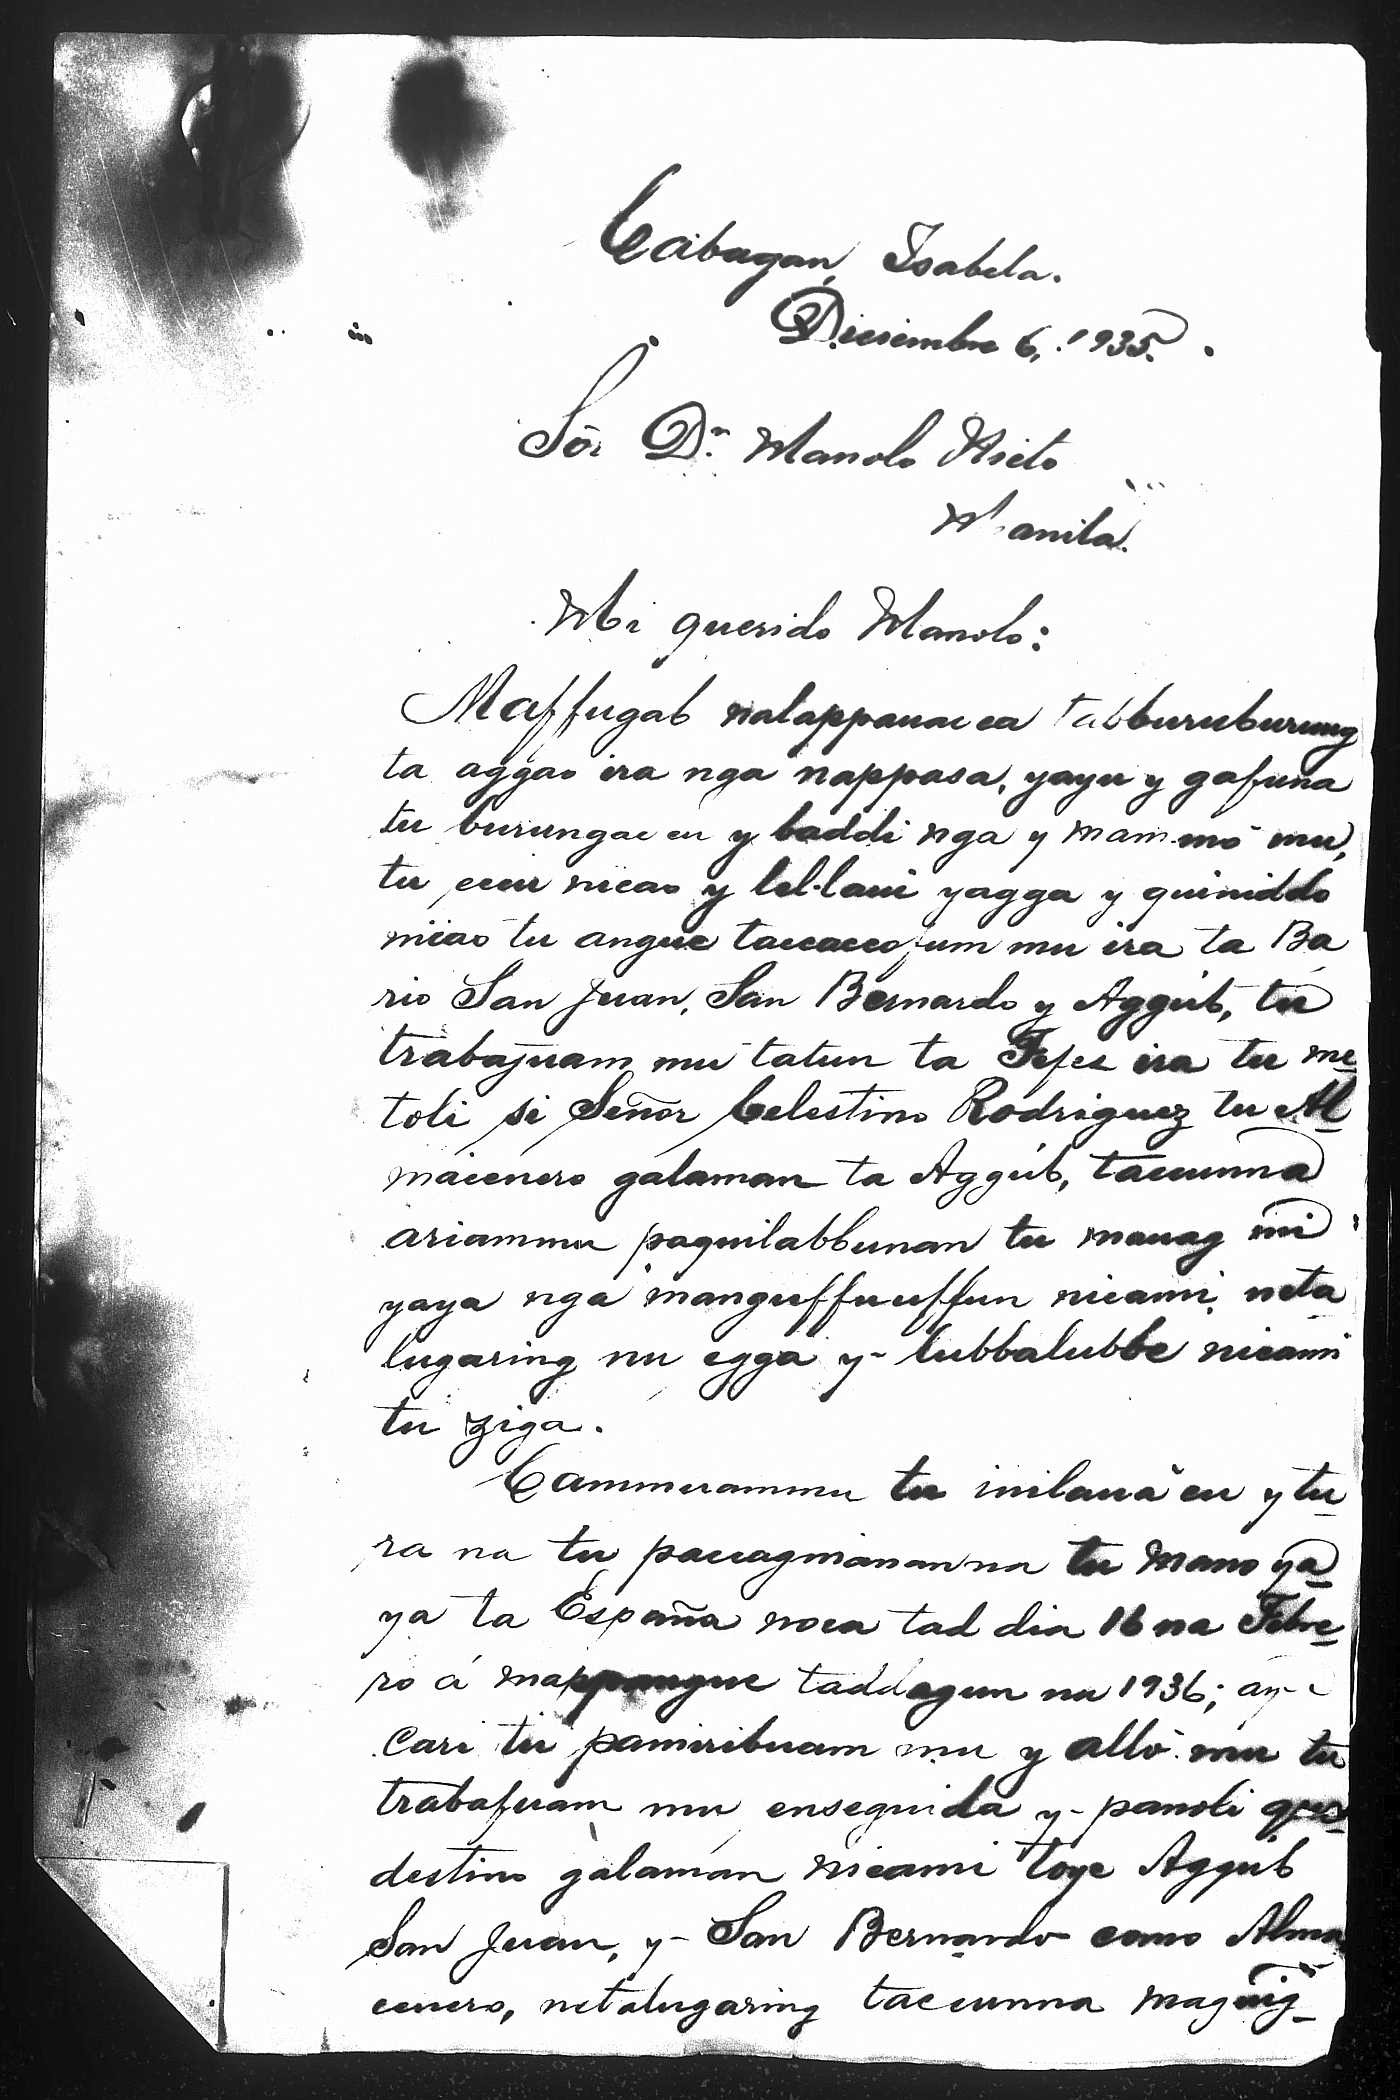 Cabagan, Isabela.
Diciembre 6, 1935.
Sōr Dⁿ Manolo Nieto
Manila.
Mi querido Manolo:
Maffugab nalappauac ca tabburuburung
ta aggao ira nga nappasa, yayu y gafuna
tu burungac cu y baddi nga y mammó mu,
tu ccur nicao y lel-laui yagga y quiniddo
nicao tu angue taccaccofum mu ira ta Ba
rio San Juan, San Bernardo y Aggúb, tu
trabajuam mu tatun ta Fefes ira tu me
toli si Señor Celestino Rodriguez tu Al
macenero galaman ta Aggúb, tacunna
ariammu paquilabbunan tu mauag mi
yaya nga manguffuuffun nicami neta
lugaring nu egga y- lubbalubbe nicami
tu ziga.
Cammuammu tu inilauá cu y tu
ra na tu paccagmananna tu Mano ya
ya ta España noca tad dia 16 na Febre
ro á mappangue taddagun na 1936;
cari tu pamiribuam mu y alló mu tu
trabafuam mu enseguida y- panoli que
destino galaman nicami toye Aggub
San Juan, y- San Bernardo como Alma
cenero, netalugaring tacunna maguig